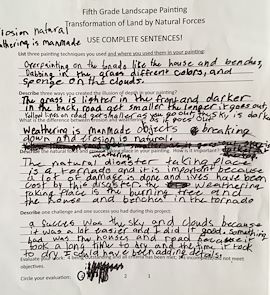 Fifth Grade Landscape Painting
Transformation of Land by Natural Forces
Erosion natural
weathering is manmade
USE COMPLETE SENTENCES!
List three painting techniques you used and where you used them in your painting:
Overpainting on the tonado like the house and benches,
Dabbing on the grass diffrent colors, and
sponge on the clouds.
Describe three ways you created the illusion of depth in your painting?
The grass is lighter in the front and darker
in the back, road get smaller the longer it goes out,
Yellow lines on road get smaller as you go out, sky is dark
What is the difference between erosion and weathering?
as it goes out
Weathering is manmade objects breaking
down and erosion is natural
Describe the natural taking place in your painting. How is it important?
weathering
The natural disaster taking place
is a tornado and it is important because
lot of damage is done and lives have been
cost by this disaster. The weathering
taking place is the burning tree and
the house and benches in the tornado
Describe one challenge and one success you had during this project:
a success was the sky and clouds because
it was a lot easier and I did it good. Something
bad was the houses and road because it
took a long time to dry and the time it took
to dry I could have been adding details.
Circle your evaluation:
2 1